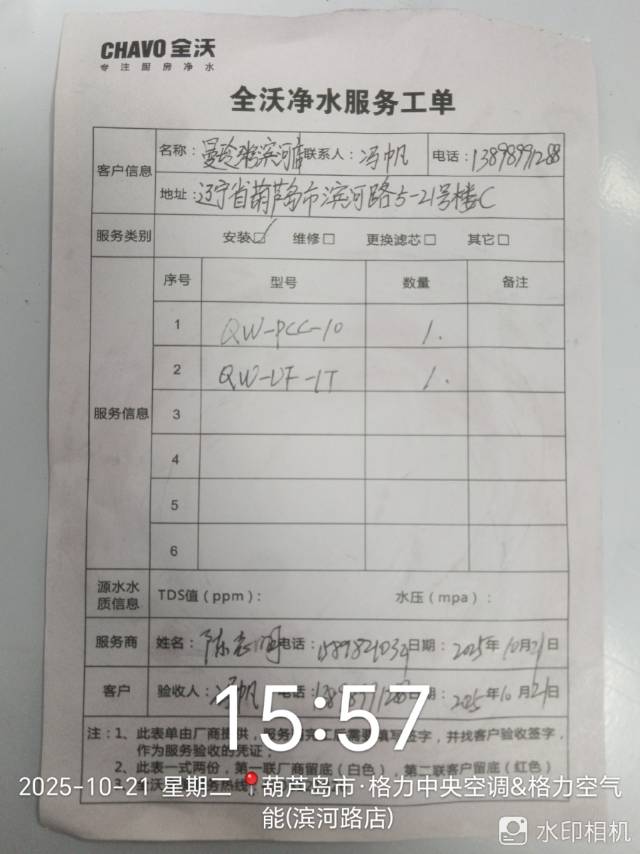 CHAVO 全沃
专注厨房净水
全沃净水服务工单
客户信息
名称：曼玲粥滨河店 联系人：冯帆 电话：13898991288
地址：辽宁省葫芦岛市滨河路5-21号楼C
服务类别 安装☑ 维修□ 更换滤芯□ 其它□
服务信息
序号 型号 数量 备注
1 QW-PCC-10 1.
2 QW-UF-1T 1.
3
4
5
6
源水水质信息 TDS值（ppm）： 水压（mpa）：
服务商 姓名： 电话： 日期：2025年10月21日
客户 验收人：冯帆 电话： 日期：2025年10月21日
15:57
注：1、此表单由厂商提供，服务 签字，并找客户验收签字，
作为服务验收的凭证；
2、此表一式两份，第一联厂商留底（白色） 第二联客户留底（红色）
2025-10-21 星期二 葫芦岛市·格力中央空调&格力空气
能(滨河路店)
水印相机